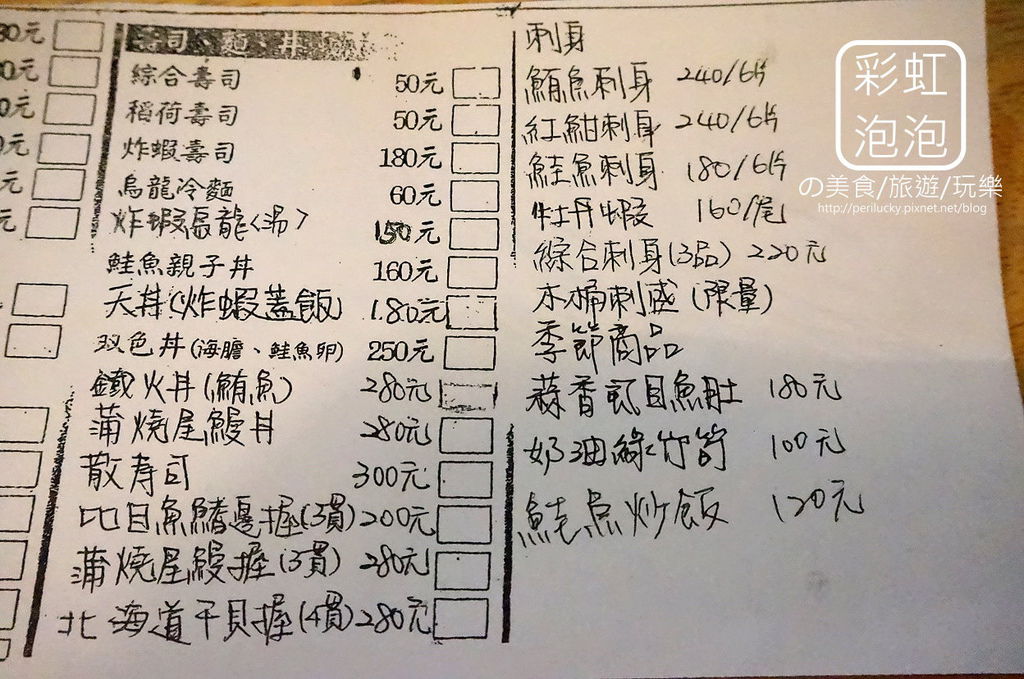 30元
0元
0元
元
元
元
壽司、麵、丼
綜合壽司 50元
稻荷壽司 50元
炸蝦壽司 180元
烏龍冷麵 60元
炸蝦烏龍<湯> 150元
鮭魚親子丼 160元
天丼(炸蝦蓋飯) 180元
双色丼(海膽、鮭魚卵) 250元
鐵火丼(鮪魚) 280元
蒲燒星鰻丼 280元
散寿司 300元
比目魚鰭邊握(3貫) 200元
蒲燒星鰻握(3貫) 280元
北海道干貝握(4貫) 280元
刺身
鮪魚刺身 240/6片
紅魽刺身 240/6片
鮭魚刺身 180/6片
牡丹蝦 160/尾
綜合刺身(3品) 220元
木桶刺盛(限量)
季節商品
蒜香虱目魚肚 180元
奶油綠竹筍 100元
鮭魚炒飯 120元
彩虹
泡泡
の美食/旅遊/玩樂
http://perilucky.pixnet.net/blog